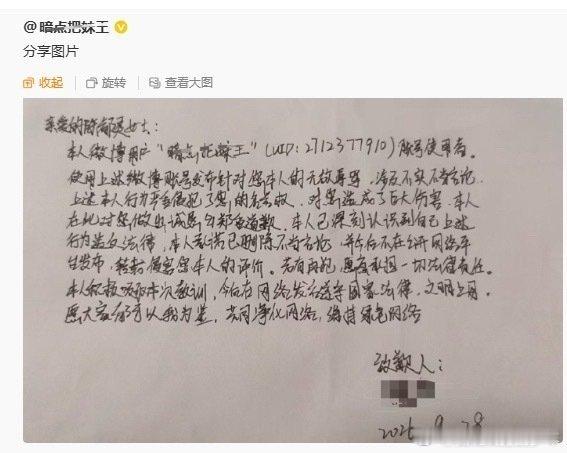 @暗点把妹王
分享图片
收起 旋转 查看大图
亲爱的陈都灵女士:
本人微博用户"暗点把妹王"(UID:2712377910)账号使用者。
使用上述微博账号发布针对您本人的无故辱骂,涉及不实不当言论
上述本人行为严重侵犯了您的名誉权,对您造成了巨大伤害。本人
在此对您做出诚恳与郑重道歉。本人已深刻认识到自己上述
行为违反法律,本人承诺已删除不当言论,并今后不在公开网络平
台发布,转封侵害您本人的评价。若有再犯,愿意承担一切法律责任。
本人积极吸取本次教训,今后在网络发言遵守国家法律,文明上网。
愿大家都可以我为鉴,共同净化网络,维持绿色网络
致歉人:
2025 9 28